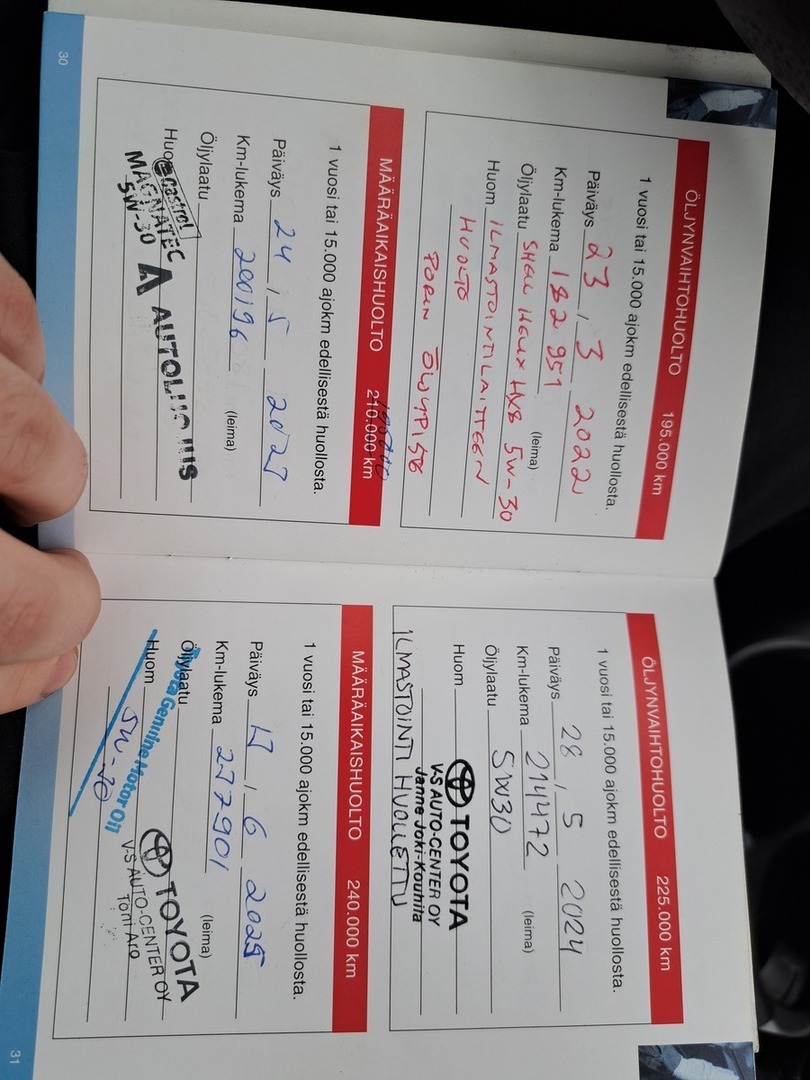 ÖLJYNVAIHTOHUOLTO 195.000 km
1 vuosi tai 15.000 ajokm edellisestä huollosta.
Päiväys 23 , 3 2022
Km-lukema 182 951
(leima)
Öljylaatu SHELL HELIX HX8 5W-30
Huom ILMASTOINTILAITTEEN
HUOLTO
PORIN
MÄÄRÄAIKAISHUOLTO 210.000 km
1 vuosi tai 15.000 ajokm edellisestä huollosta.
Päiväys 24 , 5
Km-lukema 200196
(leima)
Öljylaatu
Huom
Castrol
MAGNATEC
5W-30
30
ÖLJYNVAIHTOHUOLTO 225.000 km
1 vuosi tai 15.000 ajokm edellisestä huollosta.
Päiväys 28 , 5 2024
Km-lukema 214472
(leima)
Öljylaatu 5W30
Huom
TOYOTA
V-S AUTO-CENTER OY
Janne Joki-Kouhila
ILMASTOINTI HUOLLETTU
MÄÄRÄAIKAISHUOLTO 240.000 km
1 vuosi tai 15.000 ajokm edellisestä huollosta.
Päiväys 17 , 6 2025
Km-lukema 227901
(leima)
Öljylaatu
Genuine Motor Oil
Huom
TOYOTA
V-S AUTO-CENTER OY
Toni Aro
31